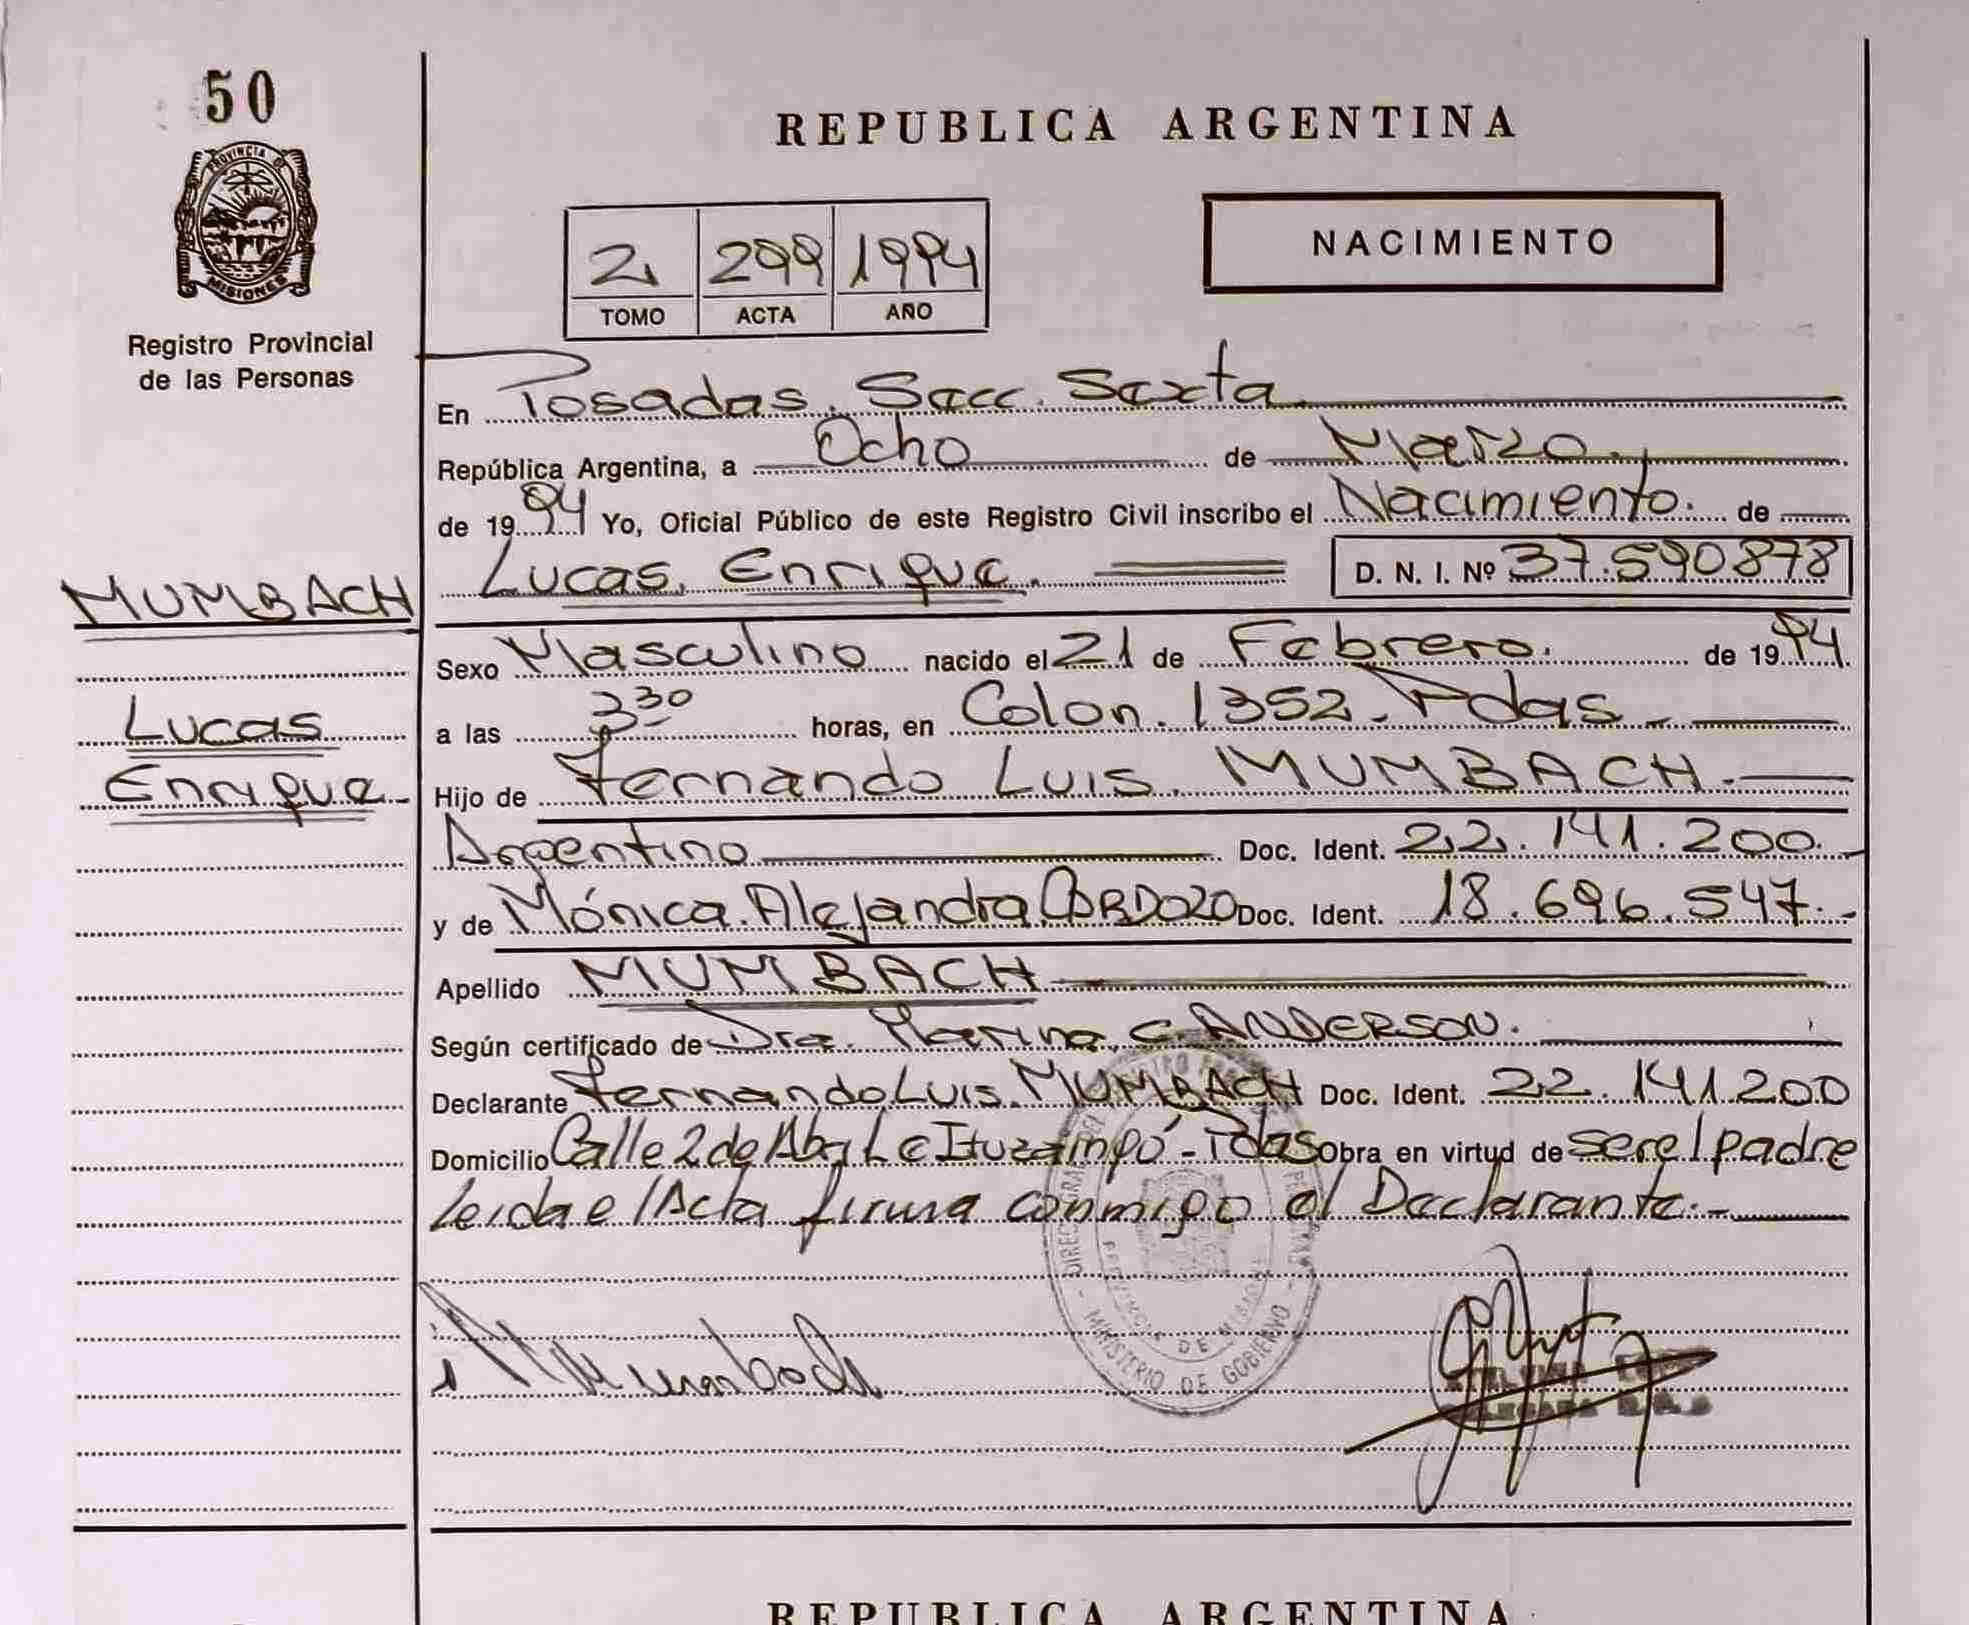 50
PROVINCIA DE
MISIONES
Registro Provincial
de las Personas
MUMBACH
Lucas
Enrique
REPUBLICA ARGENTINA
2 299 1994
TOMO ACTA AÑO
NACIMIENTO
En Posadas. Secc. Sexta
República Argentina, a Ocho de Marzo
de 1994 Yo, Oficial Público de este Registro Civil inscribo el Nacimiento. de
Lucas Enrique. D. N. I. Nº 37.590878
Sexo Masculino nacido el 21 de Febrero. de 1994
a las 3 30 horas, en Colon. 1352. Pdas
Hijo de Fernando Luis. MUMBACH.
Argentino Doc. Ident. 22.141.200.
y de Mónica. Alejandra CARDOZO Doc. Ident. 18.696.547.-
Apellido MUMBACH
Según certificado de Dra. Marina C. ANDERSON.
Declarante Fernando Luis. MUMBACH Doc. Ident. 22.141.200
Domicilio Calle 2 de Abril e Ituzaingó - Pdas Obra en virtud de ser el padre
Leida el Acta firma conmigo el Declarante.-
MINISTERIO DE GOBIERNO
Mumbach
REPUBLICA ARGENTINA